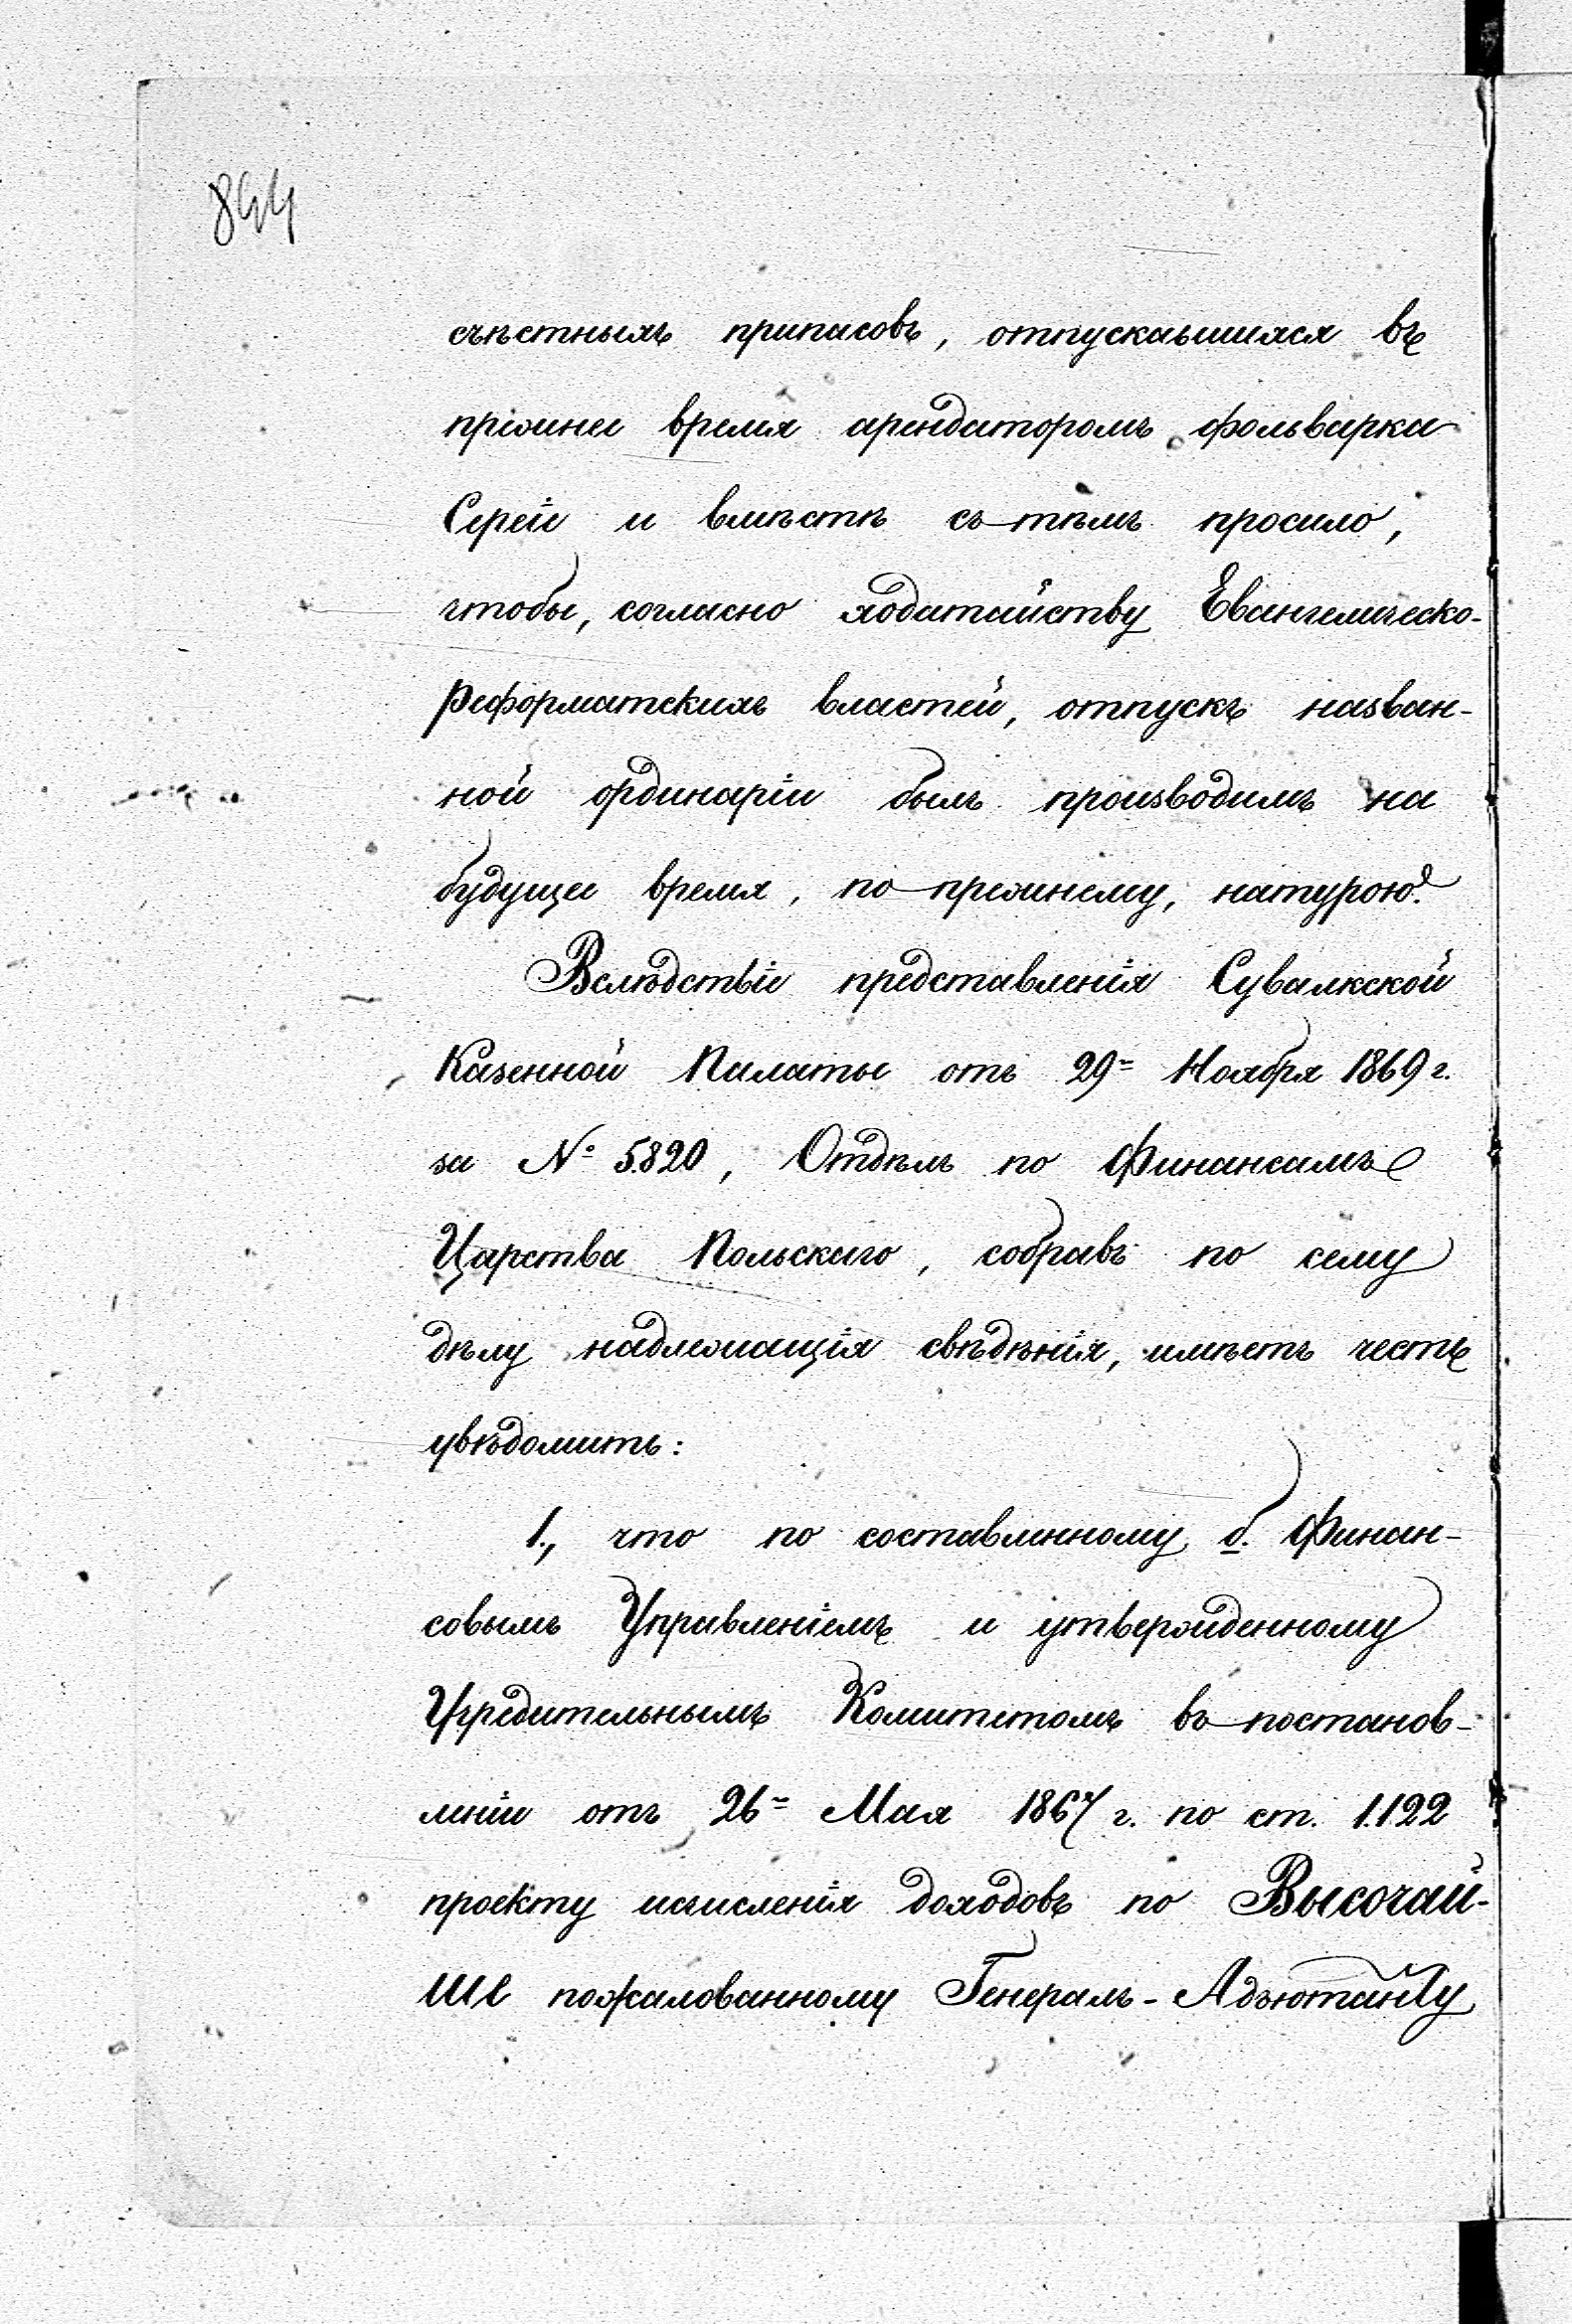 844
съѣстныхъ припасовъ, отпускавшихся въ
прежнее время арендаторомъ фольварка
Серее и вмѣстѣ съ тѣмъ просило,
чтобы, согласно ходатайству Евангелическо-
реформатскихъ властей, отпускъ назван-
ной ординаріи былъ производимъ на
будущее время, по прежнему, натурою.
Вслѣдствіе представленія Сувалкской
Казенной Палаты отъ 29= Ноября 1869 г.
за № 5820, Отдѣлъ по Финансамъ
Царства Польскаго, собравъ по сему
дѣлу надлежащія свѣдѣнія, имѣетъ честь
увѣдомить:
1., что по составленному б. Финан-
совымъ Управленіемъ и утвержденному
Учредительнымъ Комитетомъ въ постанов-
леніи отъ 26= Мая 1867 г. по ст. 1.122
проекту исчисленія доходовъ по Высочай-
ше пожалованному Генералъ-Адъютанту